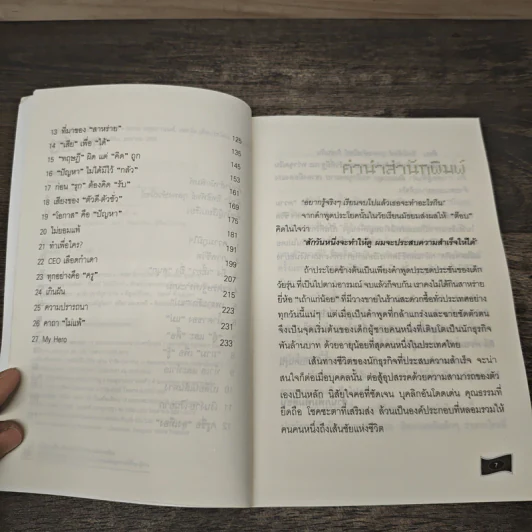 13 ที่มาของ "สาหร่าย" 125
14 "เสีย" เพื่อ "ได้" 135
15 "ทฤษฎี" ผิด แต่ "คิด" ถูก 145
16 "ปัญหา" ไม่ได้มีไว้ "กลัว" 153
17 ก่อน "รุก" ต้องคิด "รับ" 161
18 เสียงของ "ตัวดี-ตัวชั่ว" 169
19 "โอกาส" คือ "ปัญหา" 175
20 ไม่ยอมแพ้ 181
21 ทำเพื่อใคร? 191
22 CEO เลือดกำเดา 199
23 ทุกอย่างคือ "ครู" 207
24 เกินฝัน 215
25 ความปรารถนา 223
26 คาถา "ไม่แพ้" 231
27 My Hero 233
คำนำสำนักพิมพ์
"อยากรู้จริงๆ เรียนจบไปแล้วเธอจะทำอะไรกิน"
จากคำพูดประโยคนั้นในวัยเรียนมัธยมส่งผลให้ "ต๊อบ"
คิดในใจว่า
"สักวันหนึ่งจะทำให้ดู ผมจะประสบความสำเร็จให้ได้"
ถ้าประโยคข้างต้นเป็นเพียงคำพูดประชดประชันของเด็ก
วัยรุ่น ที่เป็นไปตามอารมณ์ จบแล้วก็จบกัน เราคงไม่ได้กินสาหร่าย
ยี่ห้อ "เถ้าแก่น้อย" ที่มีวางขายในร้านสะดวกซื้อทั่วประเทศอย่าง
ทุกวันนี้แน่ๆ แต่เมื่อเป็นคำพูดที่กล้าแกร่งและฉายชัดตัวตน
จึงเป็นจุดเริ่มต้นของเด็กผู้ชายคนหนึ่งที่เติบโตเป็นนักธุรกิจ
พันล้านบาท ด้วยอายุน้อยที่สุดคนหนึ่งในประเทศไทย
เส้นทางชีวิตของนักธุรกิจที่ประสบความสำเร็จ จะน่า
สนใจก็ต่อเมื่อบุคคลนั้น ต่อสู้อุปสรรคด้วยความสามารถของตัว
เองเป็นหลัก นิสัยใจคอที่ชัดเจน บุคลิกอันโดดเด่น คุณธรรมที่
ยึดถือ โชคชะตาที่เสริมส่ง ล้วนเป็นองค์ประกอบที่หลอมรวมให้
คนคนหนึ่งถึงเส้นชัยแห่งชีวิต
7